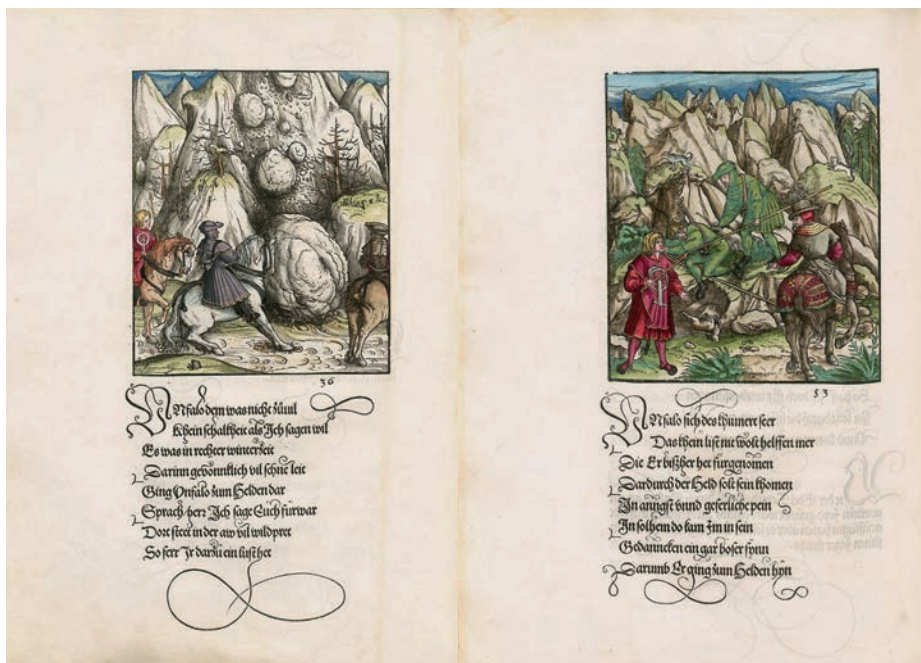 36
UNfalo dem was nicht zuuil
Khein schalkheit als Ich sagen wil
Es was in rechter winterzeit
Darinn gewonntlich vil schne leit
Ging Vnfalo zum Helden dar
Sprach herr Ich sage Euch furwar
Dort steet in der aw vil wildpret
So ferr Ir darzu ein lust het
53
UNfalo sich des khumert seer
Das khein list nie wolt helffen mer
Die Er bißher het furgenomen
Dardurch der Held solt sein khomen
In anngst vnnd geferliche pein
In solhem do kam Im in sein
Gedanncken ein gar boser synn
Darumb Er ging zum Helden hyn